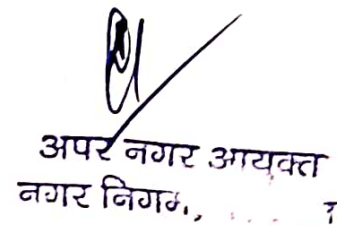 अपर नगर आयुक्त
नगर निगम,